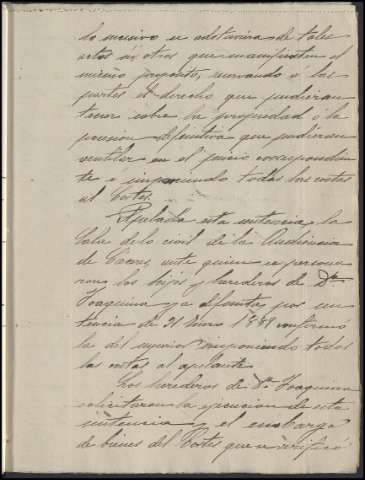 lo sucesivo se abstuviera de tales
actos ú otros que manifiesten el
mismo proposito, reservando á las
partes el derecho que pudieran
tener sobre la propiedad ó la
posesion definitiva que podrian
ventilar en el juicio correspondien
te é imponiendo todas las costas
al Cortés.
Apelada esta sentencia, la
Sala de lo civil de la Audiencia
de Cáceres ante quien se persona
ron los hijos y herederos de Dª
Joaquina ya difunta, por sen
tencia de 21 Enero 1889 confirmó
la del inferior imponiendo todas
las costas al apelante.
Los herederos de Dª Joaquina
solicitaron la ejecucion de esta
sentencia y el embargo
de bienes del Cortés que se verificó